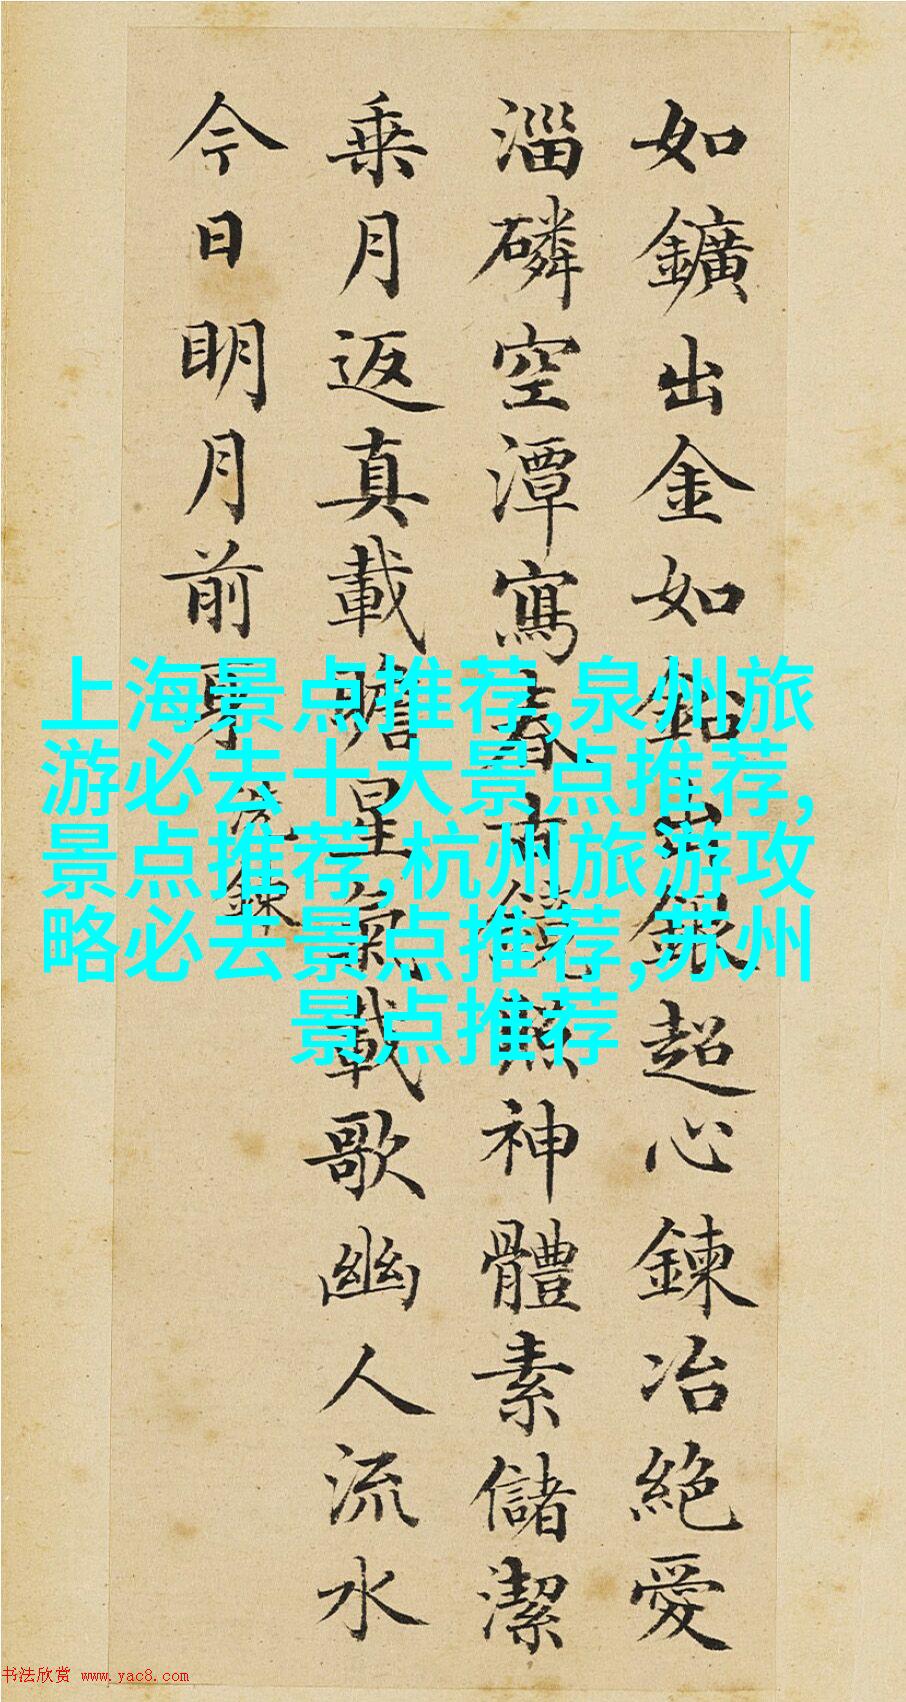 如鑛出金如鉛出銀超心鍊冶絕愛
淄磷空潭寫春古鏡照神體素儲潔
乗月返真載瞻星氣載歌幽人流水
今日明月前身
洗鍊
上海景点推荐,泉州旅
游必去十大景点推荐,
景点推荐,杭州旅游攻
略必去景点推荐,苏州
景点推荐
书法欣赏 www.yac8.com